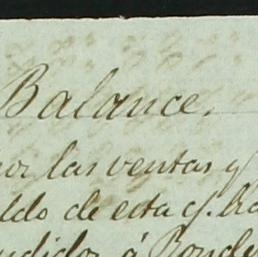 Balance.
por las ventas y
ldo de esta cf.
ndidos á